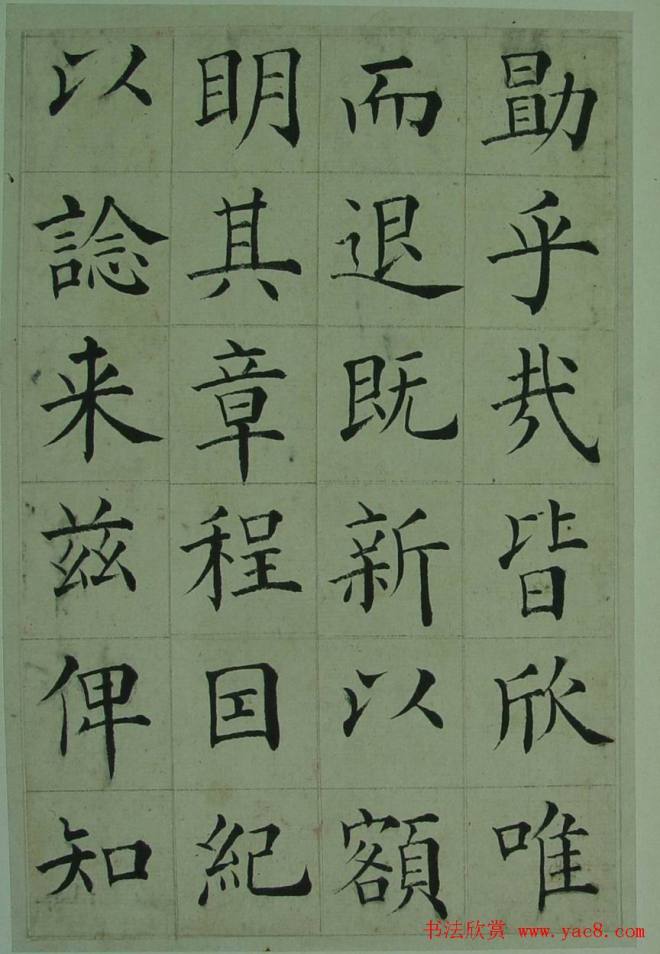 勖乎哉皆欣唯
而退既新以額
眀其章程囙紀
以諗来兹俾知
书法欣赏 www.yac8.com